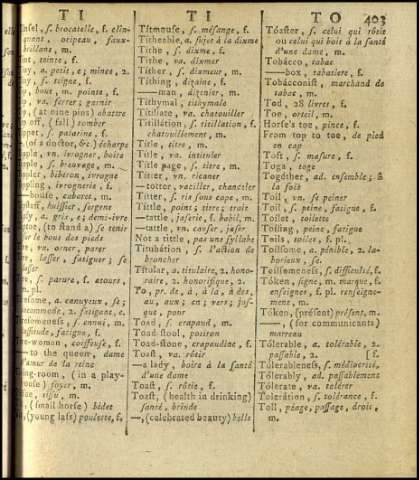 TI
TI
TO
403
s. brocatelle, f. clin-
quant, oripeau, faux-
brillant, m.
teinte, f.
a. petit, e; mince, 2.
s. teigne, f.
bout, m. pointe, f.
va. ferrer; garnir
(at nine pins) abattre
off, (fall) tomber
s. palatine, f.
(of a doctor, &c.) écharpe
vn. ivrogner, boire
s. breuvage, m.
biberon, ivrogne
ivrognerie, f.
house, cabaret, m.
huissier, sergent
a. gris, e; demi-ivre
(to stand a) se tenir
sur le bout des pieds
va. orner, parer
lasser, fatiguer; se
lasser
s. parure, f. atours,
m. pl.
a. ennuyeux, se;
incommode, 2. fatigant, e.
s. ennui, m.
fatigue, f.
woman, coiffeuse, f.
to the queen, dame
d'atour de la reine
room, (in a play-
house) foyer, m.
tissu, m.
(small horse) bidet
(young lass) poulette, f.
Titmouse, s. mésange, f.
Titheable, a. sujet à la dixme
Tithe, s. dixme, f.
Tithe, va. dixmer
Tither, s. dixmeur, m.
Tithing, dizaine, f.
—man, dizenier, m.
Tithymal, tithymale
Titillate, va. chatouiller
Titillátion, s. titillation, f.
chatouillement, m.
Title, s. titre, m.
Title, va. intituler
Title page, s. titre, m.
Titter, vn. ricaner
—totter, vaciller, chanceler
Titter, s. ris sous cape, m.
Tittle, point; titre; trait
—tattle, jaserie, f. babil, m.
—tattle, vn. causer, jaser
Not a tittle, pas une syllabe
Titubátion, s. l'action de
broncher
Titular, a. titulaire, 2. hono-
raire, 2. honorifique, 2.
To, pr. de, à, à la, à des,
au, aux; en; vers; jus-
que, pour
Toad, s. crapaud, m.
Toad-stool, potiron
Toad-stone, crapaudine, f.
Toast, va. rôtir
—a lady, boire à la santé
d'une dame
Toast, s. rôtie, f.
Toast, (health in drinking)
santé, brinde
—, (celebrated beauty) belle
Tóaster, s. celui qui rôtit
ou celui qui boit à la santé
d'une dame, m.
Tobácco, tabac
—box, tabatiere, f.
Tobácconist, marchand de
tabac, m.
Tod, 28 livres, f.
Toe, orteil, m.
Horse's toe, pince, f.
From top to toe, de pied
en cap
Toft, s. masure, f.
Toga, toge
Togéther, ad. ensemble; à
la fois
Toil, vn. se peiner
Toil, s. peine, fatigue, f.
Toilet, toilette
Toiling, peine, fatigue
Toils, toiles, f. pl.
Toilsome, a. pénible, 2. la-
borieux, se.
Toilsomeness, s. difficulté, f.
Tóken, signe, m. marque, f.
enseignes, f. pl. renseigne-
mens, m.
Tóken, (présent) présent, m.
—(for communicants)
marreau
Tólerable, a. tolérable, 2.
passable, 2.
Tólerableness, s. médiocrité, f.
Tólerably, ad. passablement
Tólerate, va. tolérer
Tolerátion, s. tolérance, f.
Toll, péage, passage, droit,
m.